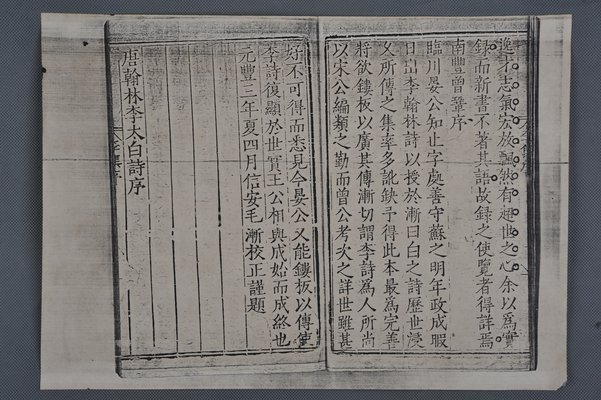 逸才志氣宏放飄然有超世之心余以爲實
錄而新書不著其語故錄之使覽者得詳焉
南豐曾鞏序
臨川晏公知止字處善守蘇之明年政成暇
日出李翰林詩以授於漸曰白之詩歷世浸
久所傳之集率多訛缺予得此本最爲完善
將欲鏤板以廣其傳漸切謂李詩爲人所尚
以宋公編類之勤而曾公考次之詳世雖甚
好不可得而悉見今晏公又能鏤板以傳使
李詩復顯於世實王公相與成始而成終也
元豐三年夏四月信安毛漸校正謹題
唐翰林李太白詩序